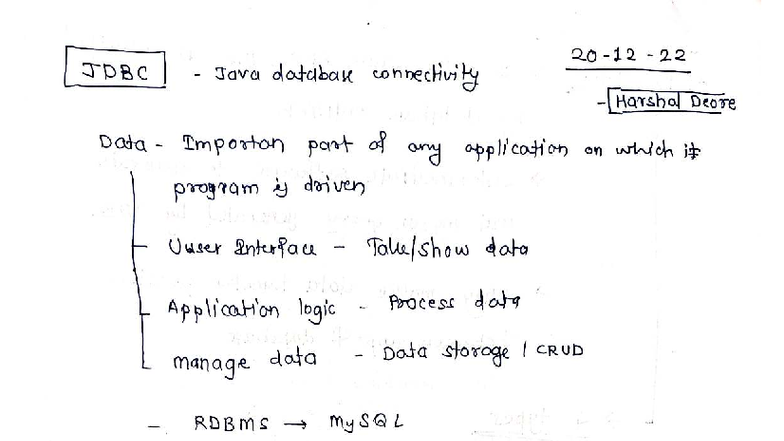 JDBC - Java database connectivity
20-12-22
- Harshal Deore
Data - Importan part of any application on which it
program is driven
Uuser Interface - Take/show data
Application logic - Process data
manage data - Data storage / CRUD
- RDBMS → MySQL